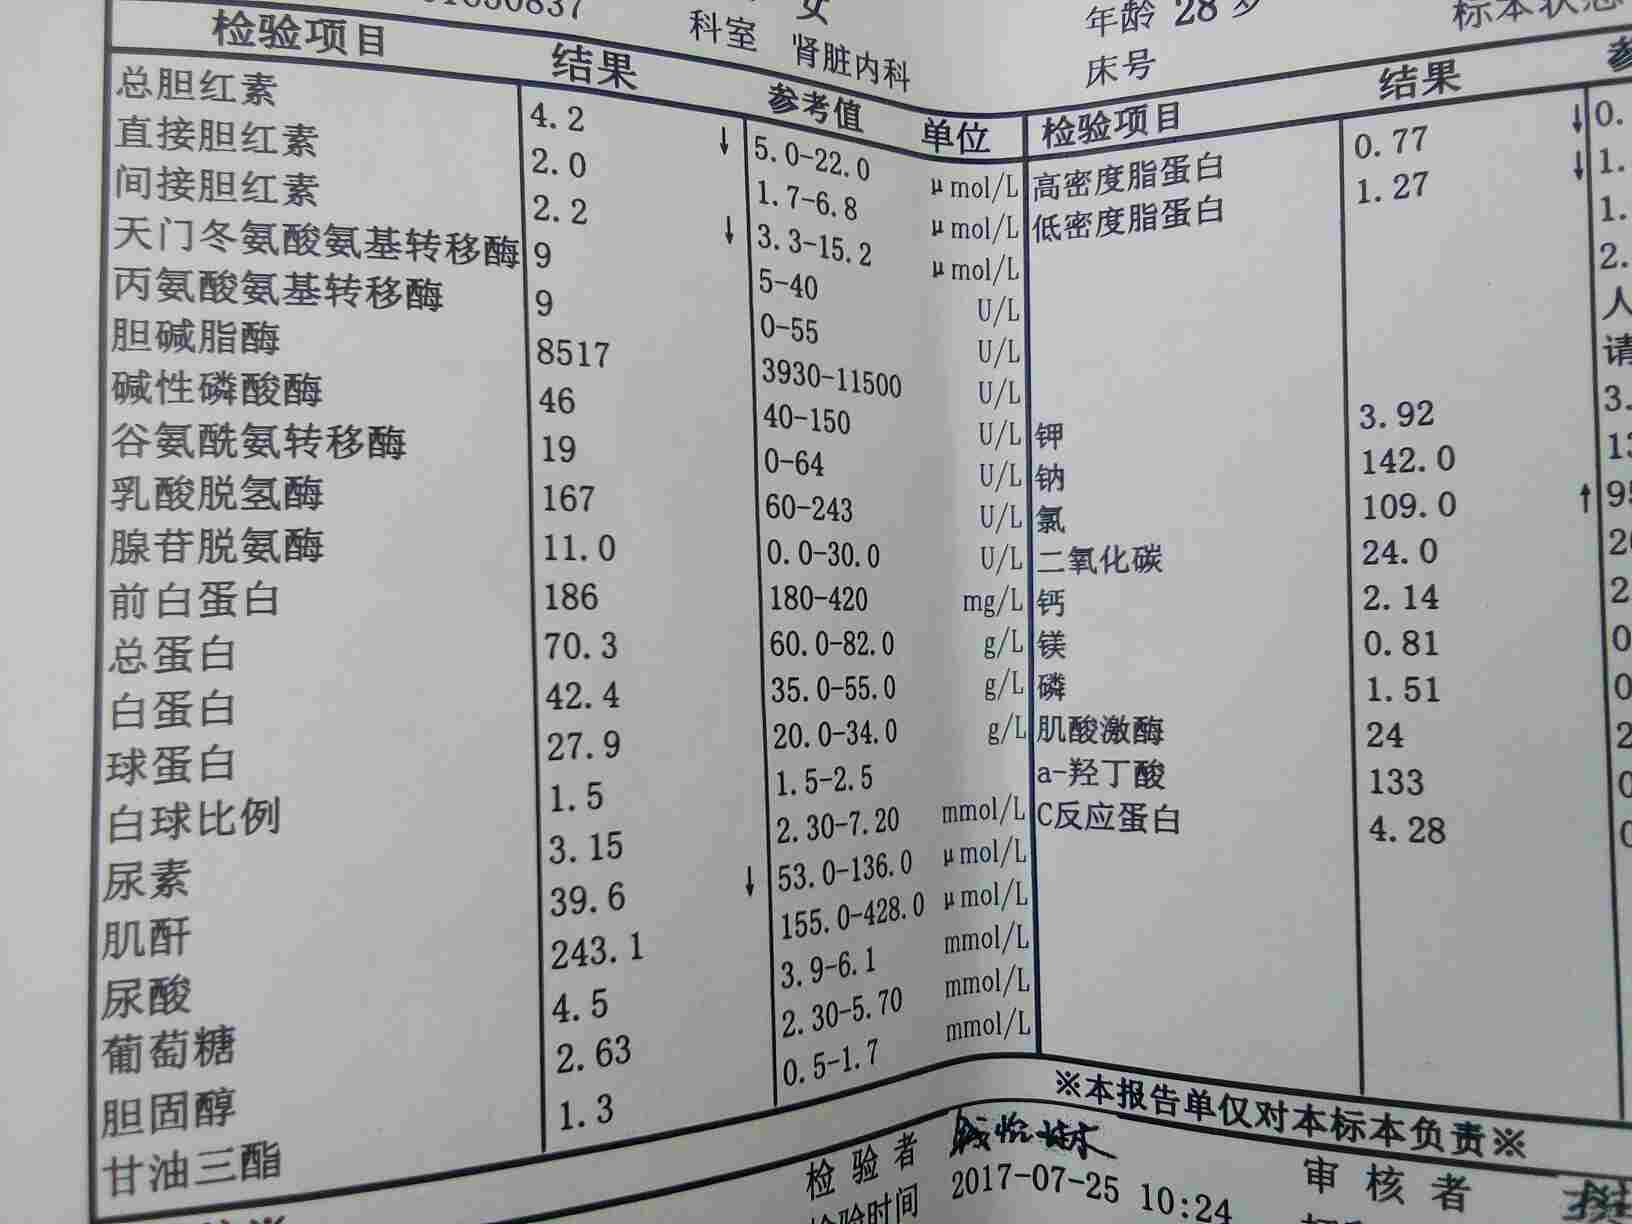 女
年龄 28 岁
标本状态
科室 肾脏内科
床号
检验项目 结果 参考值 单位 检验项目 结果
总胆红素 4.2 ↓ 5.0-22.0 μmol/L 高密度脂蛋白 0.77 ↓ 0.
直接胆红素 2.0 1.7-6.8 μmol/L 低密度脂蛋白 1.27 ↓ 1.
间接胆红素 2.2 ↓ 3.3-15.2 μmol/L 1.
天门冬氨酸氨基转移酶 9 5-40 U/L 2.
丙氨酸氨基转移酶 9 0-55 U/L 人
胆碱脂酶 8517 3930-11500 U/L 请
碱性磷酸酶 46 40-150 U/L 钾 3.92 3.
谷氨酰氨转移酶 19 0-64 U/L 钠 142.0 13
乳酸脱氢酶 167 60-243 U/L 氯 109.0 ↑ 95
腺苷脱氨酶 11.0 0.0-30.0 U/L 二氧化碳 24.0 20
前白蛋白 186 180-420 mg/L 钙 2.14 2
总蛋白 70.3 60.0-82.0 g/L 镁 0.81 0
白蛋白 42.4 35.0-55.0 g/L 磷 1.51 0
球蛋白 27.9 20.0-34.0 g/L 肌酸激酶 24 2
白球比例 1.5 1.5-2.5 a-羟丁酸 133 0
尿素 3.15 2.30-7.20 mmol/L C反应蛋白 4.28 0
肌酐 39.6 ↓ 53.0-136.0 μmol/L
尿酸 243.1 155.0-428.0 μmol/L
葡萄糖 4.5 3.9-6.1 mmol/L
胆固醇 2.63 2.30-5.70 mmol/L
甘油三酯 1.3 0.5-1.7 mmol/L
※本报告单仅对本标本负责※
检验者
审核者
检验时间 2017-07-25 10:24